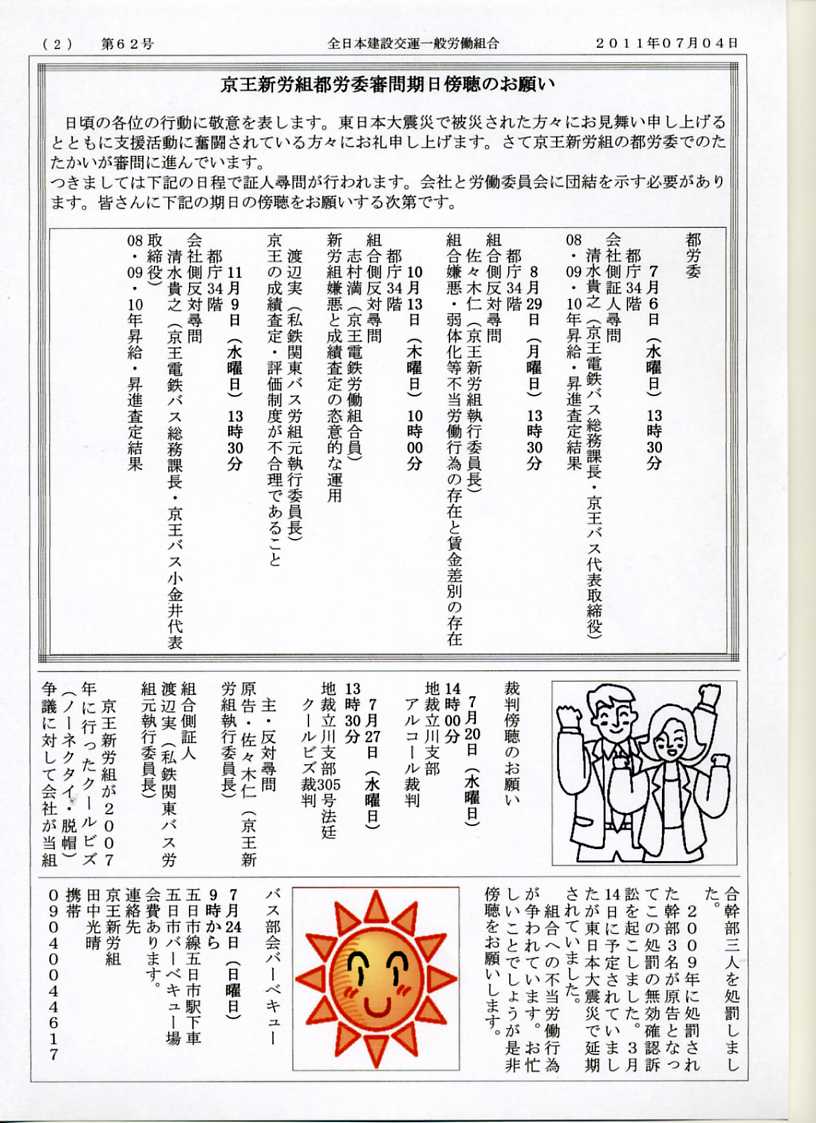 (2) 第62号
全日本建設交運一般労働組合
2011年07月04日
京王新労組都労委審問期日傍聴のお願い
日頃の各位の行動に敬意を表します。東日本大震災で被災された方々にお見舞い申し上げる
とともに支援活動に奮闘されている方々にお礼申し上げます。さて京王新労組の都労委でのた
たかいが審問に進んでいます。
つきましては下記の日程で証人尋問が行われます。会社と労働委員会に団結を示す必要があり
ます。皆さんに下記の期日の傍聴をお願いする次第です。
都労委
7月6日(水曜日)13時30分
都庁34階
会社側証人尋問
清水貴之(京王電鉄バス総務課長・京王バス代表取締役)
08・09・10年昇給・昇進査定結果
8月29日(月曜日)13時30分
都庁34階
組合側反対尋問
佐々木仁(京王新労組執行委員長)
組合嫌悪・弱体化等不当労働行為の存在と賃金差別の存在
10月13日(木曜日)10時00分
都庁34階
組合側反対尋問
志村満(京王電鉄労働組合員)
新労組嫌悪と成績査定の恣意的な運用
渡辺実(私鉄関東バス労組元執行委員長)
京王の成績査定・評価制度が不合理であること
11月9日(水曜日)13時30分
都庁34階
会社側反対尋問
清水貴之(京王電鉄バス総務課長・京王バス小金井代表
取締役)
08・09・10年昇給・昇進査定結果
裁判傍聴のお願い
7月20日(水曜日)
14時00分
地裁立川支部
アルコール裁判
7月27日(水曜日)
13時30分
地裁立川支部305号法廷
クールビズ裁判
主・反対尋問
原告・佐々木仁(京王新
労組執行委員長)
組合側証人
渡辺実(私鉄関東バス労
組元執行委員長)
京王新労組が2007
年に行ったクールビズ
(ノーネクタイ・脱帽)
争議に対して会社が当組
合幹部三人を処罰しまし
た。
2009年に処罰され
た幹部3名が原告となっ
てこの処罰の無効確認訴
訟を起こしました。3月
14日に予定されていまし
たが東日本大震災で延期
されていました。
組合への不当労働行為
が争われています。お忙
しいことでしょうが是非
傍聴をお願いします。
バス部会バーベキュー
7月24日(日曜日)
9時から
五日市線五日市駅下車
五日市バーベキュー場
会費あります。
連絡先
京王新労組
田中光晴
携帯
09040044617